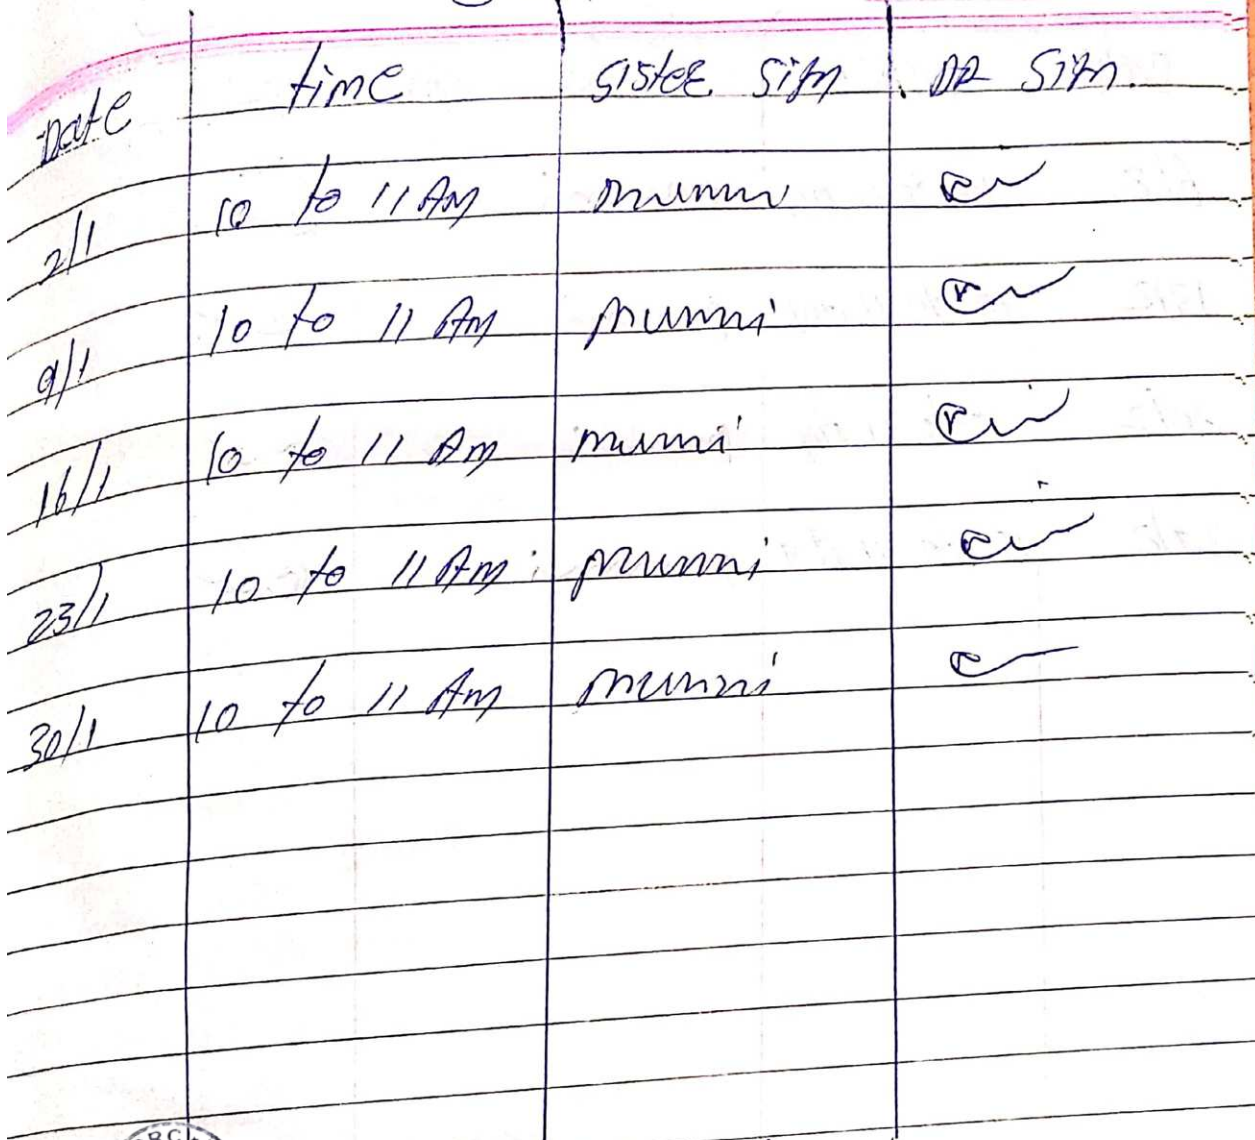 Date time Sister Sign DR Sign.
2/1 10 to 11 Am munni
9/1 10 to 11 Am munni
16/1 10 to 11 Am munni
23/1 10 to 11 Am munni
30/1 10 to 11 Am munni